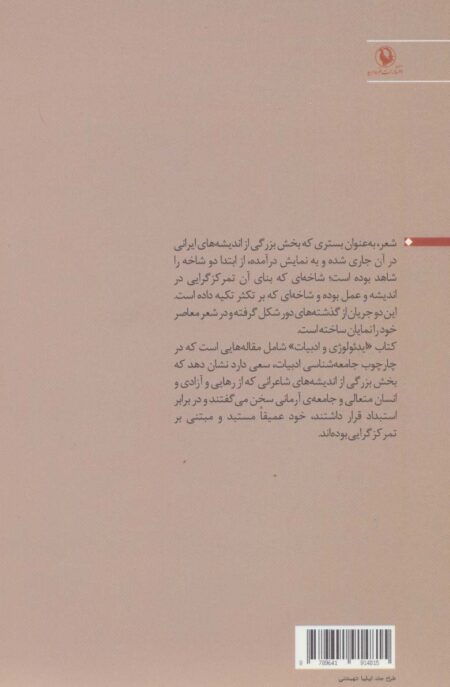 انتشارات مروارید
شعر، به‌عنوان بستری که بخش بزرگی از اندیشه‌های ایرانی
در آن جاری شده و به نمایش درآمده، از ابتدا دو شاخه را
شاهد بوده است؛ شاخه‌ای که بنای آن تمرکزگرایی در
اندیشه و عمل بوده و شاخه‌ای که بر تکثر تکیه داده است.
این دو جریان از گذشته‌های دور شکل گرفته و در شعر معاصر
خود را نمایان ساخته است.
کتاب «ایدئولوژی و ادبیات» شامل مقاله‌هایی است که در
چارچوب جامعه‌شناسی ادبیات، سعی دارد نشان دهد که
بخش بزرگی از اندیشه‌های شاعرانی که از رهایی و آزادی و
انسان متعالی و جامعه‌ی آرمانی سخن می‌گفتند و در برابر
استبداد قرار داشتند، خود عمیقاً مستبد و مبتنی بر
تمرکزگرایی بوده‌اند.
9 789641 914815
طرح جلد: